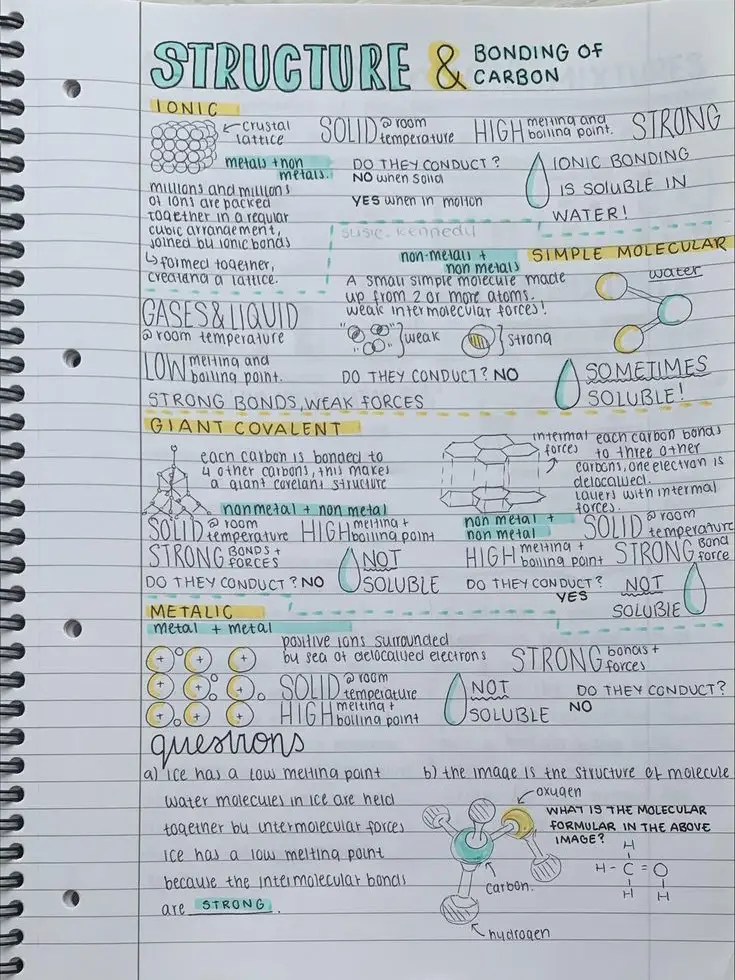 STRUCTURE & BONDING OF
CARBON
IONIC
crystal
lattice
SOLID @ room
temperature
HIGH melting and
boiling point.
STRONG
metals + non
metals.
DO THEY CONDUCT?
NO when solid
YES when in molton
IONIC BONDING
IS SOLUBLE IN
WATER!
millions and millions
of ions are packed
together in a regular
cubic arrangement,
joined by ionic bonds
↳ formed together,
creating a lattice.
susie. kennedy
SIMPLE MOLECULAR
non-metals +
non metals
A small simple molecule made
up from 2 or more atoms.
weak intermolecular forces!
water
GASES & LIQUID
@ room temperature
weak
strong
LOW melting and
boiling point.
DO THEY CONDUCT? NO
SOMETIMES
SOLUBLE!
STRONG BONDS, WEAK FORCES
GIANT COVALENT
each carbon is bonded to
4 other carbons, this makes
a giant covelant structure
nonmetal + non metal
SOLID @ room
temperature
HIGH melting +
boiling point
STRONG BONDS +
FORCES
NOT
SOLUBLE
DO THEY CONDUCT? NO
internal
forces
each carbon bonds
to three other
carbons, one electron is
delocalised.
layers with internal
forces.
non metal +
non metal
SOLID @ room
temperature
HIGH melting +
boiling point
STRONG Bond
force
DO THEY CONDUCT?
YES
NOT
SOLUBLE
METALIC
metal + metal
positive ions surrounded
by sea of delocalised electrons
STRONG bonds +
forces
+ + +
+ + +
+ + +
SOLID @ room
temperature
HIGH melting +
boiling point
NOT
SOLUBLE
DO THEY CONDUCT?
NO
questions
a) ice has a low melting point
water molecules in ice are held
together by intermolecular forces
ice has a low melting point
because the intermolecular bonds
are STRONG.
b) the image is the structure of molecule
oxygen
carbon.
hydrogen
WHAT IS THE MOLECULAR
FORMULAR IN THE ABOVE
IMAGE?
H
H - C = O
H H